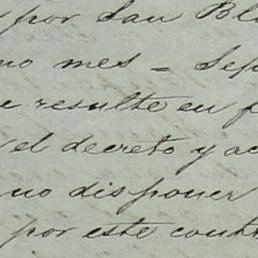 por San Bl
no mes = Sep
e resulte en f
el decreto y ac
no disponer
por este cont